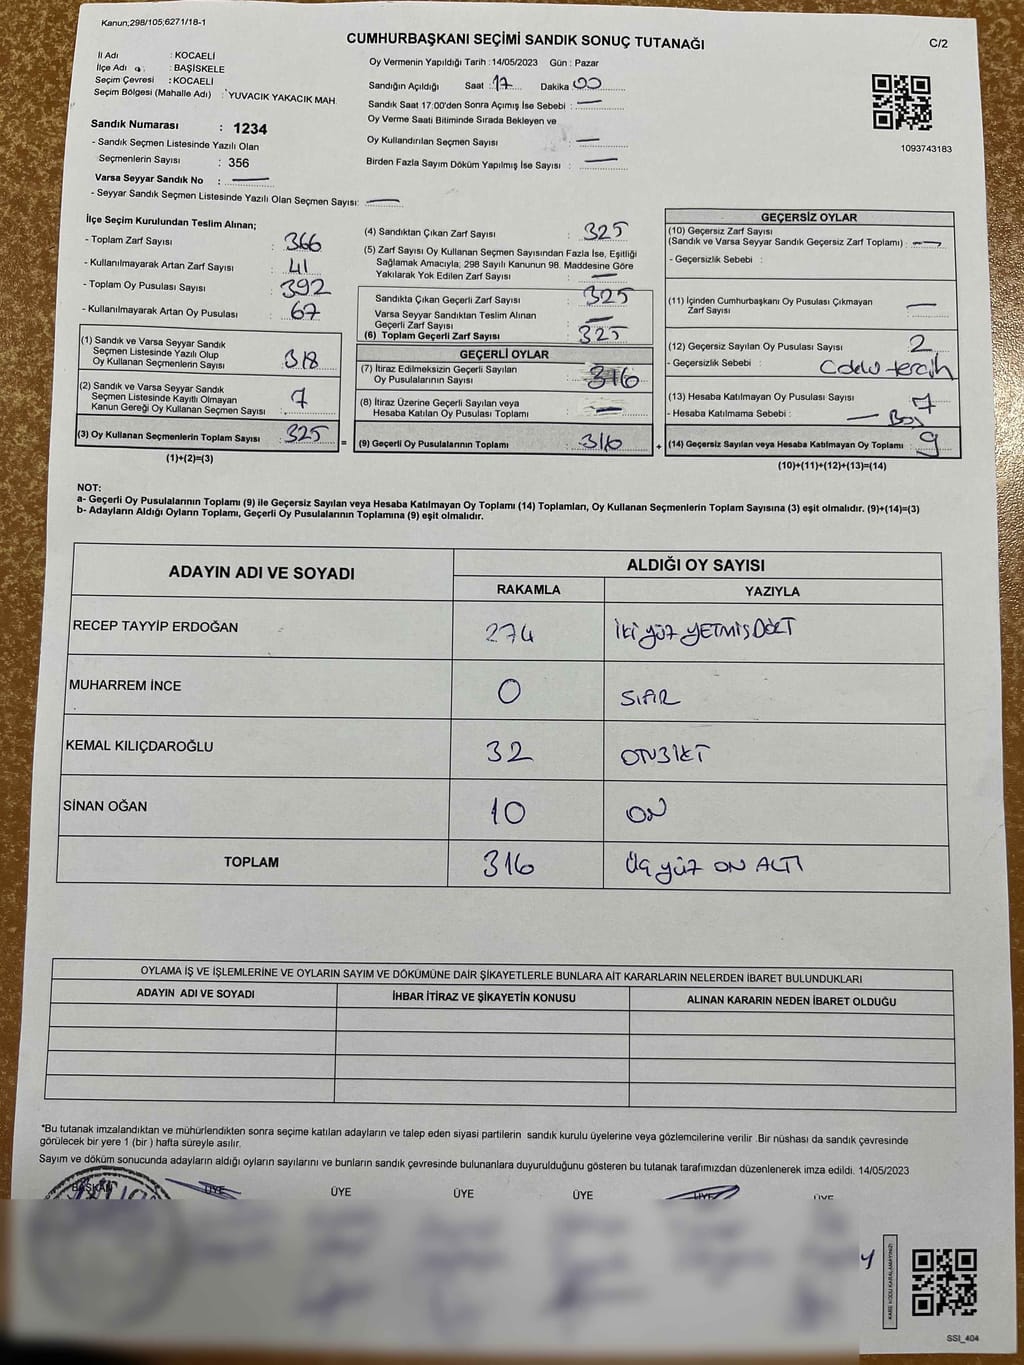 Kanun;298/105;6271/18-1
CUMHURBAŞKANI SEÇİMİ SANDIK SONUÇ TUTANAĞI
C/2
İl Adı : KOCAELİ
İlçe Adı : BAŞİSKELE
Seçim Çevresi : KOCAELİ
Seçim Bölgesi (Mahalle Adı) : YUVACIK YAKACIK MAH.
Sandık Numarası : 1234
- Sandık Seçmen Listesinde Yazılı Olan
Seçmenlerin Sayısı : 356
Varsa Seyyar Sandık No : —
- Seyyar Sandık Seçmen Listesinde Yazılı Olan Seçmen Sayısı: —
Oy Vermenin Yapıldığı Tarih : 14/05/2023 Gün : Pazar
Sandığın Açıldığı Saat : 17 Dakika 00
Sandık Saat 17:00'den Sonra Açımış İse Sebebi : —
Oy Verme Saati Bitiminde Sırada Bekleyen ve
Oy Kullandırılan Seçmen Sayısı : —
Birden Fazla Sayım Döküm Yapılmış İse Sayısı : —
1093743183
İlçe Seçim Kurulundan Teslim Alınan;
- Toplam Zarf Sayısı : 366
- Kullanılmayarak Artan Zarf Sayısı : 41
- Toplam Oy Pusulası Sayısı : 392
- Kullanılmayarak Artan Oy Pusulası : 67
(1) Sandık ve Varsa Seyyar Sandık
Seçmen Listesinde Yazılı Olup
Oy Kullanan Seçmenlerin Sayısı : 318
(2) Sandık ve Varsa Seyyar Sandık
Seçmen Listesinde Kayıtlı Olmayan
Kanun Gereği Oy Kullanan Seçmen Sayısı : 7
(3) Oy Kullanan Seçmenlerin Toplam Sayısı : 325 =
(1)+(2)=(3)
(4) Sandıktan Çıkan Zarf Sayısı : 325
(5) Zarf Sayısı Oy Kullanan Seçmen Sayısından Fazla İse, Eşitliği
Sağlamak Amacıyla; 298 Sayılı Kanunun 98. Maddesine Göre
Yakılarak Yok Edilen Zarf Sayısı : —
Sandıkta Çıkan Geçerli Zarf Sayısı : 325
Varsa Seyyar Sandıktan Teslim Alınan
Geçerli Zarf Sayısı : —
(6) Toplam Geçerli Zarf Sayısı : 325
GEÇERLİ OYLAR
(7) İtiraz Edilmeksizin Geçerli Sayılan
Oy Pusulalarının Sayısı : 316
(8) İtiraz Üzerine Geçerli Sayılan veya
Hesaba Katılan Oy Pusulası Toplamı : —
(9) Geçerli Oy Pusulalarının Toplamı : 316 +
GEÇERSİZ OYLAR
(10) Geçersiz Zarf Sayısı
(Sandık ve Varsa Seyyar Sandık Geçersiz Zarf Toplamı) : —
- Geçersizlik Sebebi :
(11) İçinden Cumhurbaşkanı Oy Pusulası Çıkmayan
Zarf Sayısı : —
(12) Geçersiz Sayılan Oy Pusulası Sayısı : 2
- Geçersizlik Sebebi :
(13) Hesaba Katılmayan Oy Pusulası Sayısı : 7
- Hesaba Katılmama Sebebi : — Boş
(14) Geçersiz Sayılan veya Hesaba Katılmayan Oy Toplamı : 9
(10)+(11)+(12)+(13)=(14)
NOT:
a- Geçerli Oy Pusulalarının Toplamı (9) ile Geçersiz Sayılan veya Hesaba Katılmayan Oy Toplamı (14) Toplamları, Oy Kullanan Seçmenlerin Toplam Sayısına (3) eşit olmalıdır. (9)+(14)=(3)
b- Adayların Aldığı Oyların Toplamı, Geçerli Oy Pusulalarının Toplamına (9) eşit olmalıdır.
ADAYIN ADI VE SOYADI ALDIĞI OY SAYISI
RAKAMLA YAZIYLA
RECEP TAYYİP ERDOĞAN 274 İKİ YÜZ YETMİŞ DÖRT
MUHARREM İNCE 0 SIFIR
KEMAL KILIÇDAROĞLU 32
SİNAN OĞAN 10 ON
TOPLAM 316 ÜÇ YÜZ ON ALTI
OYLAMA İŞ VE İŞLEMLERİNE VE OYLARIN SAYIM VE DÖKÜMÜNE DAİR ŞİKAYETLERLE BUNLARA AİT KARARLARIN NELERDEN İBARET BULUNDUKLARI
ADAYIN ADI VE SOYADI İHBAR İTİRAZ VE ŞİKAYETİN KONUSU ALINAN KARARIN NEDEN İBARET OLDUĞU
*Bu tutanak imzalandıktan ve mühürlendikten sonra seçime katılan adayların ve talep eden siyasi partilerin sandık kurulu üyelerine veya gözlemcilerine verilir .Bir nüshası da sandık çevresinde
görülecek bir yere 1 (bir ) hafta süreyle asılır.
Sayım ve döküm sonucunda adayların aldığı oyların sayılarını ve bunların sandık çevresinde bulunanlara duyurulduğunu gösteren bu tutanak tarafımızdan düzenlenerek imza edildi. 14/05/2023
BAŞKAN ÜYE ÜYE ÜYE ÜYE ÜYE ÜYE
KARE KODU KARALAMAYINIZ!
SSI_404